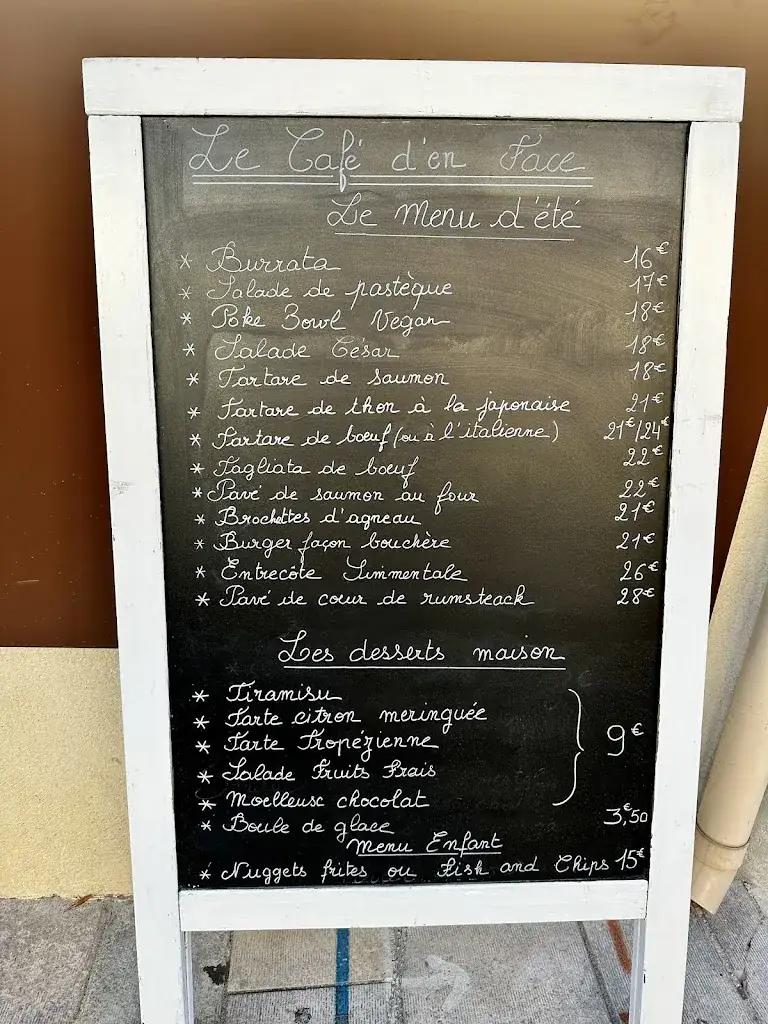 Le Café d'en Face
Le Menu d'été
* Burrata 16€
* Salade de pastèque 17€
* Poke Bowl Vegan 18€
* Salade César 18€
* Tartare de saumon 18€
* Tartare de thon à la japonaise 21€
* Tartare de bœuf (ou à l'italienne) 21€/24€
* Tagliata de bœuf 22€
* Pavé de saumon au four 22€
* Brochettes d'agneau 21€
* Burger façon bouchère 21€
* Entrecôte Simmentale 26€
* Pavé de cœur de rumsteack 28€
Les desserts maison
* Tiramisu
* Tarte citron meringuée
* Tarte Tropézienne 9€
* Salade Fruits Frais
* Moelleux chocolat
* Boule de glace 3,€50
Menu Enfant
* Nuggets frites ou Fish and Chips 15€